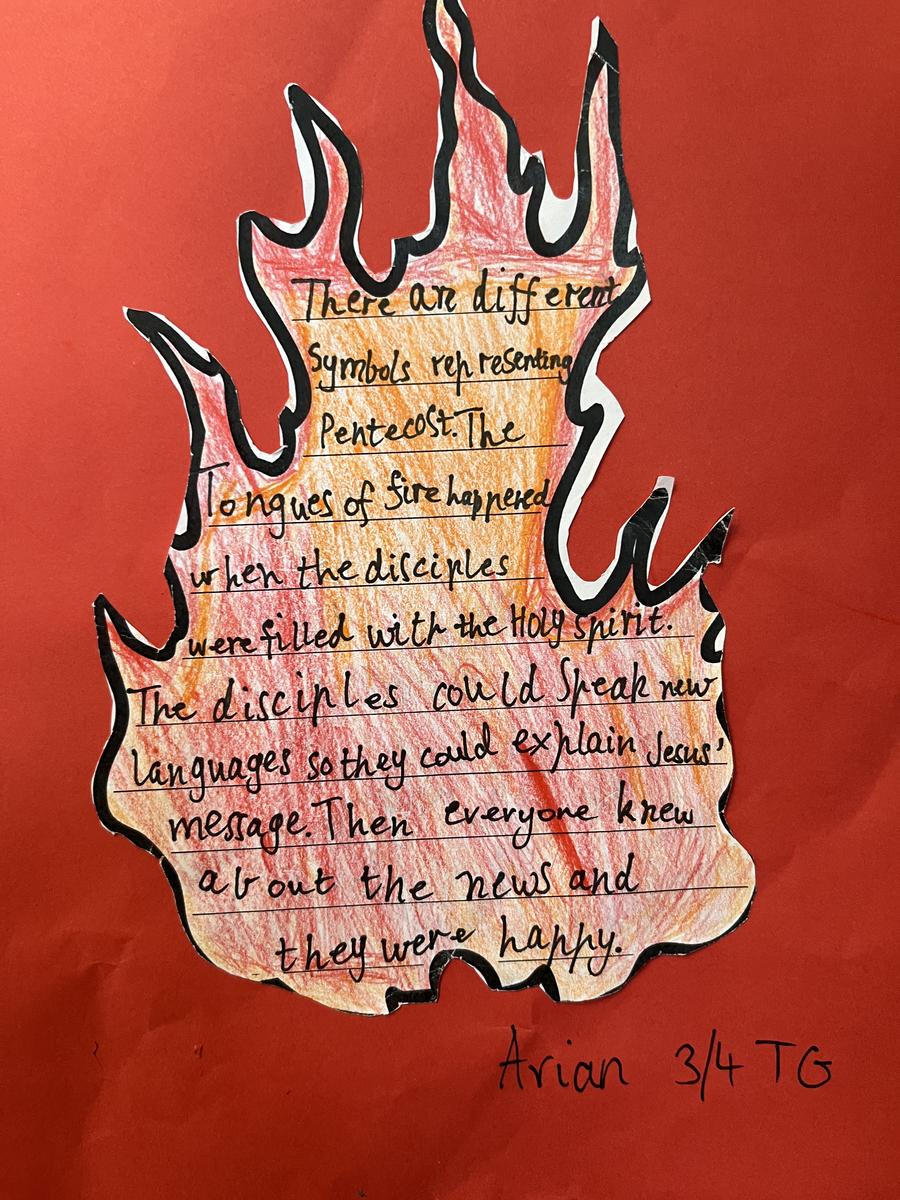 There are different
Symbols representing
Pentecost. The
Tongues of fire happered
when the disciples
were filled with the Holy spirit.
The disciples could Speak new
languages so they could explain Jesus'
message. Then everyone knew
about the news and
they were happy.
Arian 3/4 TG